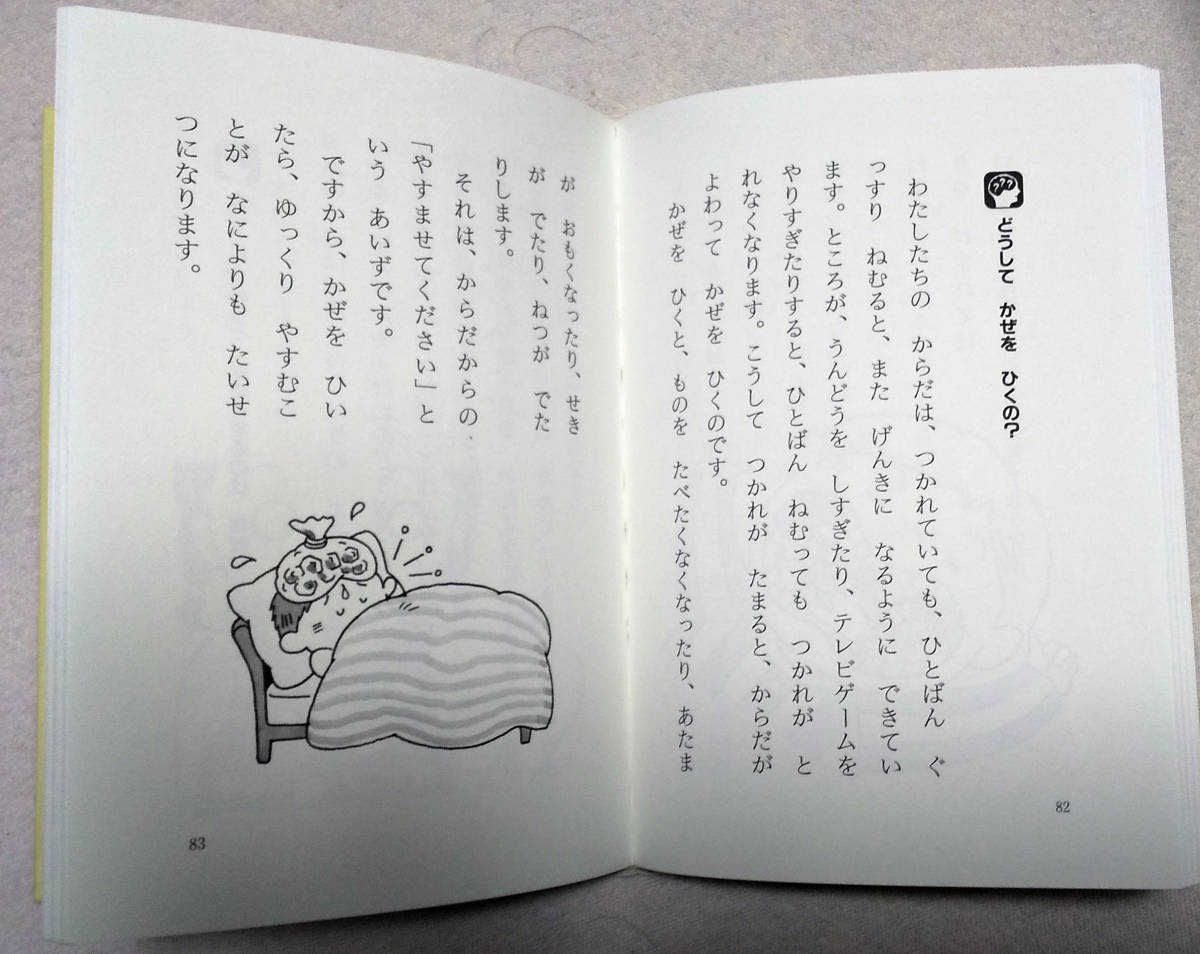 どうして かぜを ひくの?
わたしたちの からだは、つかれていても、ひとばん ぐ
っすり ねむると、また げんきに なるように できてい
ます。ところが、うんどうを しすぎたり、テレビゲームを
やりすぎたりすると、ひとばん ねむっても つかれが と
れなくなります。こうして つかれが たまると、からだが
よわって かぜを ひくのです。
かぜを ひくと、ものを たべたくなくなったり、あたま
82
が おもくなったり、せき
が でたり、ねつが でた
りします。
それは、からだからの
「やすませてください」と
いう あいずです。
ですから、かぜを ひい
たら、ゆっくり やすむこ
とが なによりも たいせ
つになります。
83